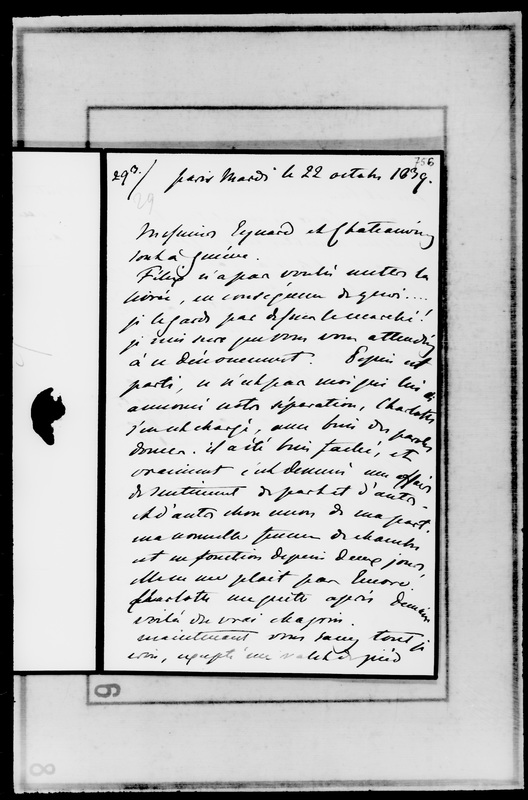 756
293/ paris Mardi le 22 octobre 1839.
29
Messieurs Eynard et Chateauvieux
sont à Genève.
Félix n'a pas voulu mettre la
livrée, en conséquence de quoi....
je le garde par dessus le marché!
je suis sure que vous vous attendiez
à ce dénouement. est
parti, ce n'est pas moi qui lui ai
annoncé notre séparation, Charlotte
s'en est chargé, avec bien des paroles
douces. il a été bien faché, et
vraiment c'est devenu une affaire
de sentiment de part et d'autre.
et d'autre chose encore de ma part.
ma nouvelle femme de chambre
est en fonction depuis deux jours,
elle ne me plait pas encore.
Charlotte me quitte après demain
voilà du vrai chagrin.
maintenant vous savez tout je
crois, excepté un valet de pied
6
8